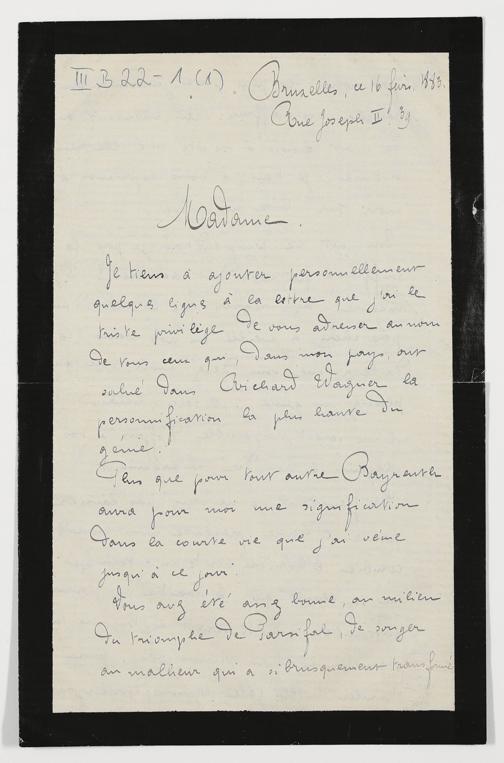 III B 22-1 (1)
Bruxelles, ce 16 févr. 1883.
Rue Joseph II. 39
Madame.
Je tiens à ajouter personnellement
quelques lignes à la lettre que j'ai le
triste privilège de vous adresser au nom
de tous ceux qui, dans mon pays, ont
salué dans Richard Wagner la
personnification la plus haute du
génie.
Plus que pour tout autre Bayreuth
aura pour moi une signification
dans la courte vie que j'ai vécue
jusqu'à ce jour.
Vous avez été assez bonne, au milieu
du triomphe de Parsifal, de songer
au malheur qui a si brusquement transformé